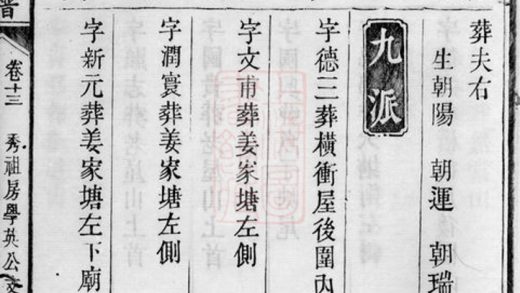 葬夫右
生朝陽 朝運 朝瑞
九派
字德三葬橫衝屋後圍內
字文甫葬姜家塘左側
字潤寰葬姜家塘左側
字新元葬姜家塘左下廟
卷十三 秀祖房學英公文